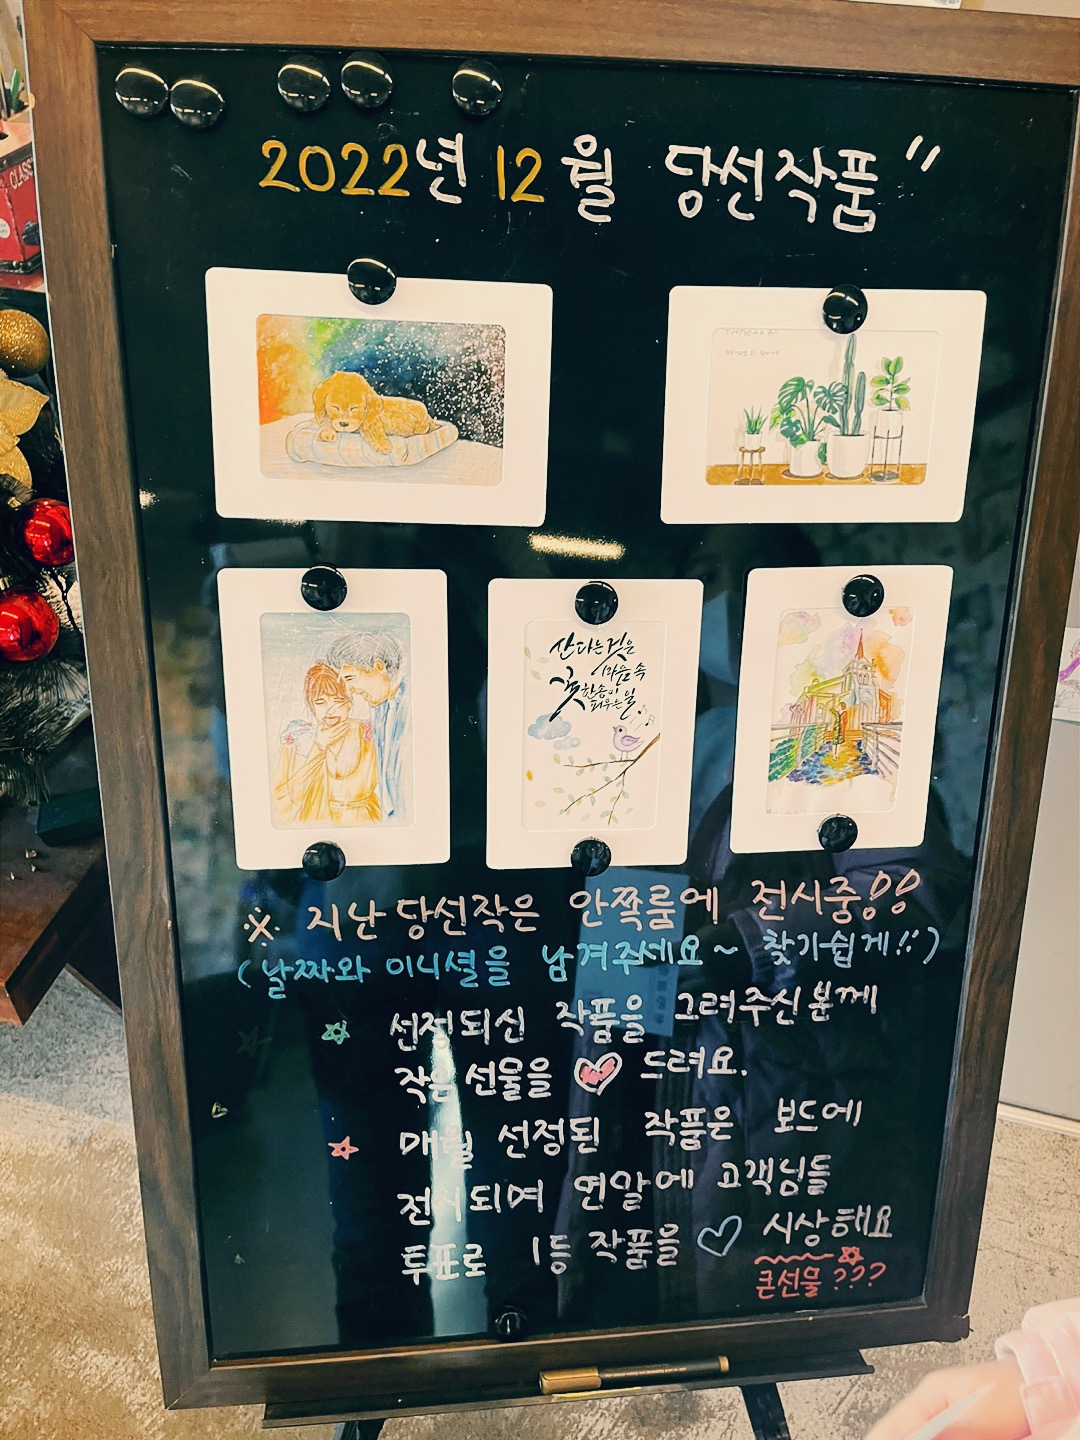 2022년 12월 당선작품"
산다는 것은
마음 속
꽃 한송이
피우는 일.
※ 지난 당선작은 안쪽룸에 전시중!!
(날짜와 이니셜을 남겨주세요~ 찾기쉽게!!)
☆ 선정되신 작품을 그려주신분께
작은 선물을 ♡ 드려요.
☆ 매월 선정된 작품은 보드에
전시되며 연말에 고객님들
투표로 1등 작품을 ♡ 시상해요
큰선물???
CLASSIC